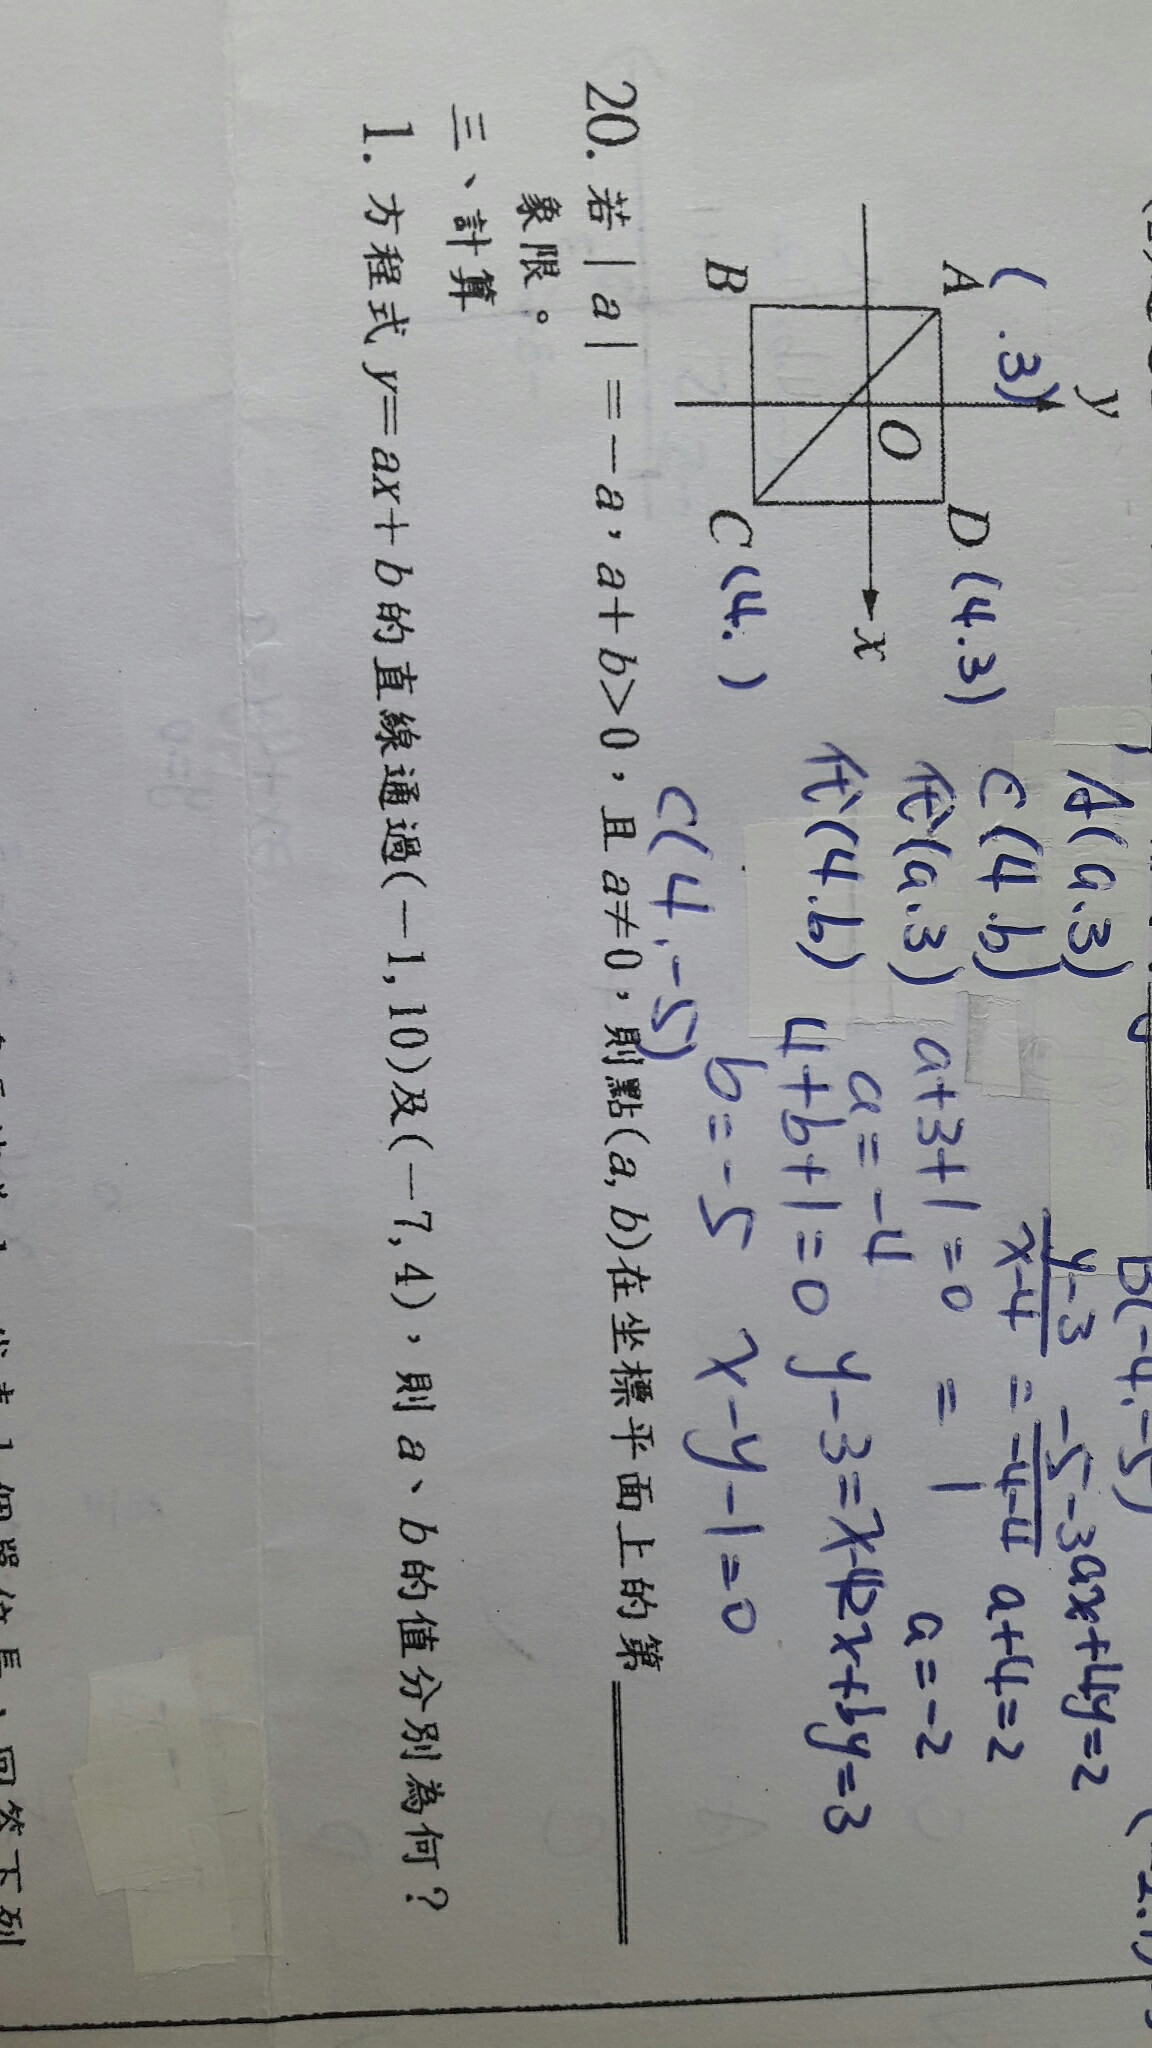 y
A
( .3)
D (4.3)
O
x
B
C (4. )
A(a.3)
C(4.b)
代(a.3) a+3+1=0
a=-4
代(4.b) 4+b+1=0
b=-5
C(4.-5)
B(-4.-5)
y-3
x-4
=
-5-3
-4-4
= 1
y-3=x-4
x-y-1=0
ax+4y=2
a+4=2
a=-2
2x+by=3
20. 若|a|=-a，a+b>0，且a≠0，則點(a, b)在坐標平面上的第
象限。
三、計算
1. 方程式y=ax+b的直線通過(-1, 10)及(-7, 4)，則a、b的值分別為何？